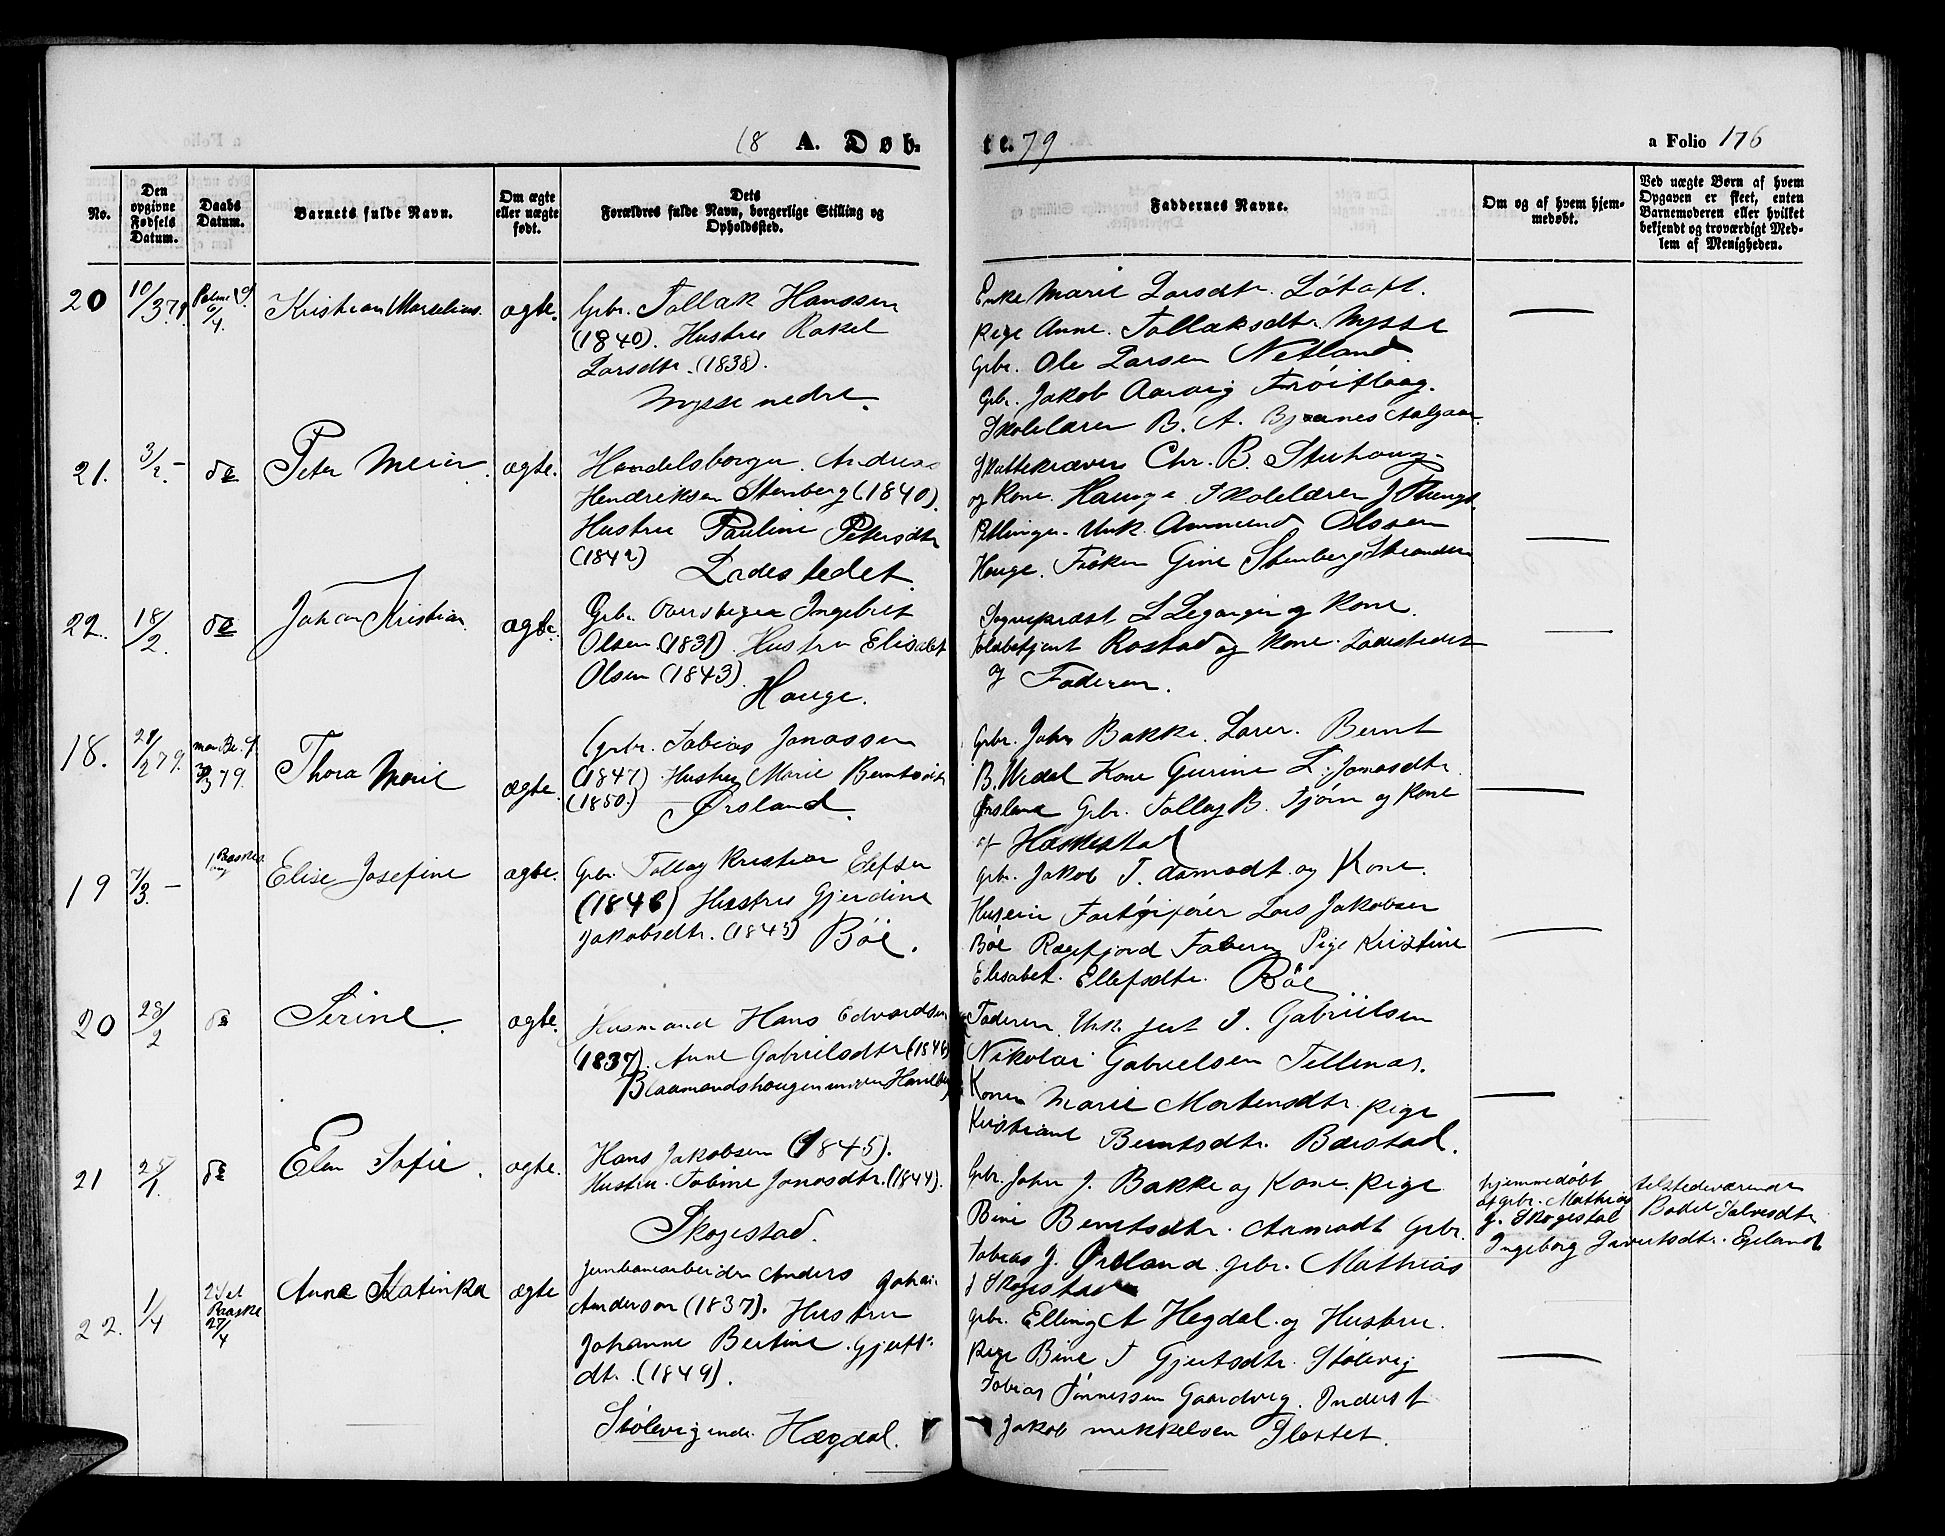 18 A. Døb-
te. 79
a Folio 176
No.
Den opgivne Fødsels Datum.
Daabs Datum.
Barnets fulde Navn.
Om ægte eller uægte født.
Dets Forældres fulde Navn, borgerlige Stilling og Opholdssted.
Faddernes Navne.
Om og af hvem hjemmedøbt.
Ved uægte Børn af hvem Opgaven er skeet, enten Barnemoderen eller hvilket bekjendt og troværdigt Medlem af Menigheden.
20 10/3 79. Palme S. 6/4. Kristian Marselius. ægte.
Gbr. Tollak Hanssen
(1840). Hustru Rakel
Larsdtr. (1838).
Mysse nedre.
Enke Marie Larsdtr. Løtoft.
Pige Anne Tollaksdtr. Mysse
Gbr. Ole Larsen Netland
Gbr. Jakob Aarvig Frøitlaag.
Skolelærer B. A. Bjønnes Aalgaar
21. 3/2 - do Peter Meier. ægte.
Handelsborger Andreas
Hendriksen Stenberg (1840).
Hustru Pauline Petersdtr
(1842)
Ladestedet.
Skattekræver Chr. B. Stuhaug
og Kone Hauge. Skolelærer
Ellinger. Unk. Ammund Olssen
Hauge. Frøken Gine Stenberg Stranden
22. 18/2. do Johan Kristian. ægte.
Gbr. Overbetjen Ingebret
Olsen (1831). Hustru Elisabet
Olsen (1843).
Hauge.
Sogneprest L Legangir og Kone.
Toldbetjent Rostad og Kone. Ladestedet
og Faderen.
18. 21/2 79. Mar Be. 79. Thora Marie ægte.
Gbr. Tobias Jonassen
(1847) Hustru Marie Berntsdtr
(1850.) Ørsland.
Gbr. John Bakke. Lærer Bernt
B. Medal Kone Gurine L. Jonasdtr.
Ørsland Gbr. Tollag B. Tjørn og Kone
af Haskestad
19 7/3. - 1 Paaske Elise Josefine ægte.
Gbr. Tollag Kristian Elefsen
(1846) Hustru Gjerdine
Jakobsdtr. (1845) Bøe.
Gbr. Jakob T. Aamodt og Kone.
Husein Fartøifører Lars Jakobsen
Bøe Rægefjord Faderen Pige Kristine
Elisabet Ellefsdtr. Bøe
20 28/2 do Serine. ægte.
Husmand Hans Edvardsen
(1837). Anne Gabrielsdtr (1846)
Blaamandshaugen under
Faderen. Unk. Jert J. Gabrielsen
Nikolai Gabrielsen Tellenæs.
Konen Marie Mortensdtr. Pige
Kristiane Berntsdtr. Bærstad.
21 25/1. do Elen Sofie. ægte.
Hans Jakobsen (1845).
Hustru Tobine Jonasdtr. (1844).
Skogestad.
Gbr. John J. Bakke og Kone. Pige
Bine Berntsdtr. Aamodt Gbr.
Tobias J. Ørsland. Gbr. Mathias
J Skogestad
hjemmedøbt tilstedeværende
af gbr. Mathias Bodel Salvesdtr
J. Skogestad
Ingeborg Sivertsdtr. Egeland
22. 1/4 2den Paaske 27/4 Anna Katinka ægte
Jernbanearbeider Anders Johan
Anderson (1837). Hustru
Johanne Bertine Gjertsdtr. (1849).
Stølevig under Hægdal.
Gbr. Elling A Hegdal og Hustru.
Pige Bine T Gjertsdtr. Stølevig
Tobias Tønnessen Gaardvig. Anders T
Jakob Mikkelsen Slottet.